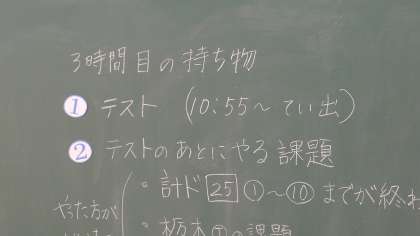 3時間目の持ち物
① テスト (10:55～てい出)
② テストのあとにやる課題
・計ド 25 ①～⑩ までが終わ
やった方が
・栃木①の課題